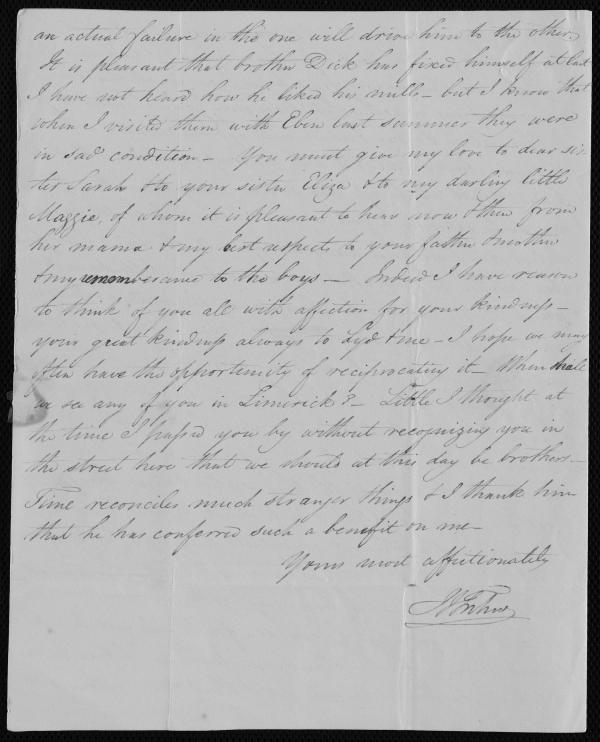 an actual failure in the one will drive him to the other
It is pleasant that brother Dick has fixed himself at last
I have not heard how he liked his mills – but I know that
when I visited them with Eben last summer they were
in sad condition – You must give my love to dear sis
ter Sarah & to your sister Eliza & to my darling little
Mazzie, of whom it is pleasant to hear now & then from
her mama & my best respects to your father & mother
& my remembrance to the boys – Indeed I have reason
to think of you all with affection for your kindness –
your great kindness always to Lyd & me – I hope we may
often have the opportunity of reciprocating it – When shall
we see any of you in Limerick? – Little I thought at
the time I passed you by without recognizing you in
the street here that we should at this day be brothers –
Time reconciles much stranger things & I thank him
that he has conferred such a benefit on me –
Yours most affectionately